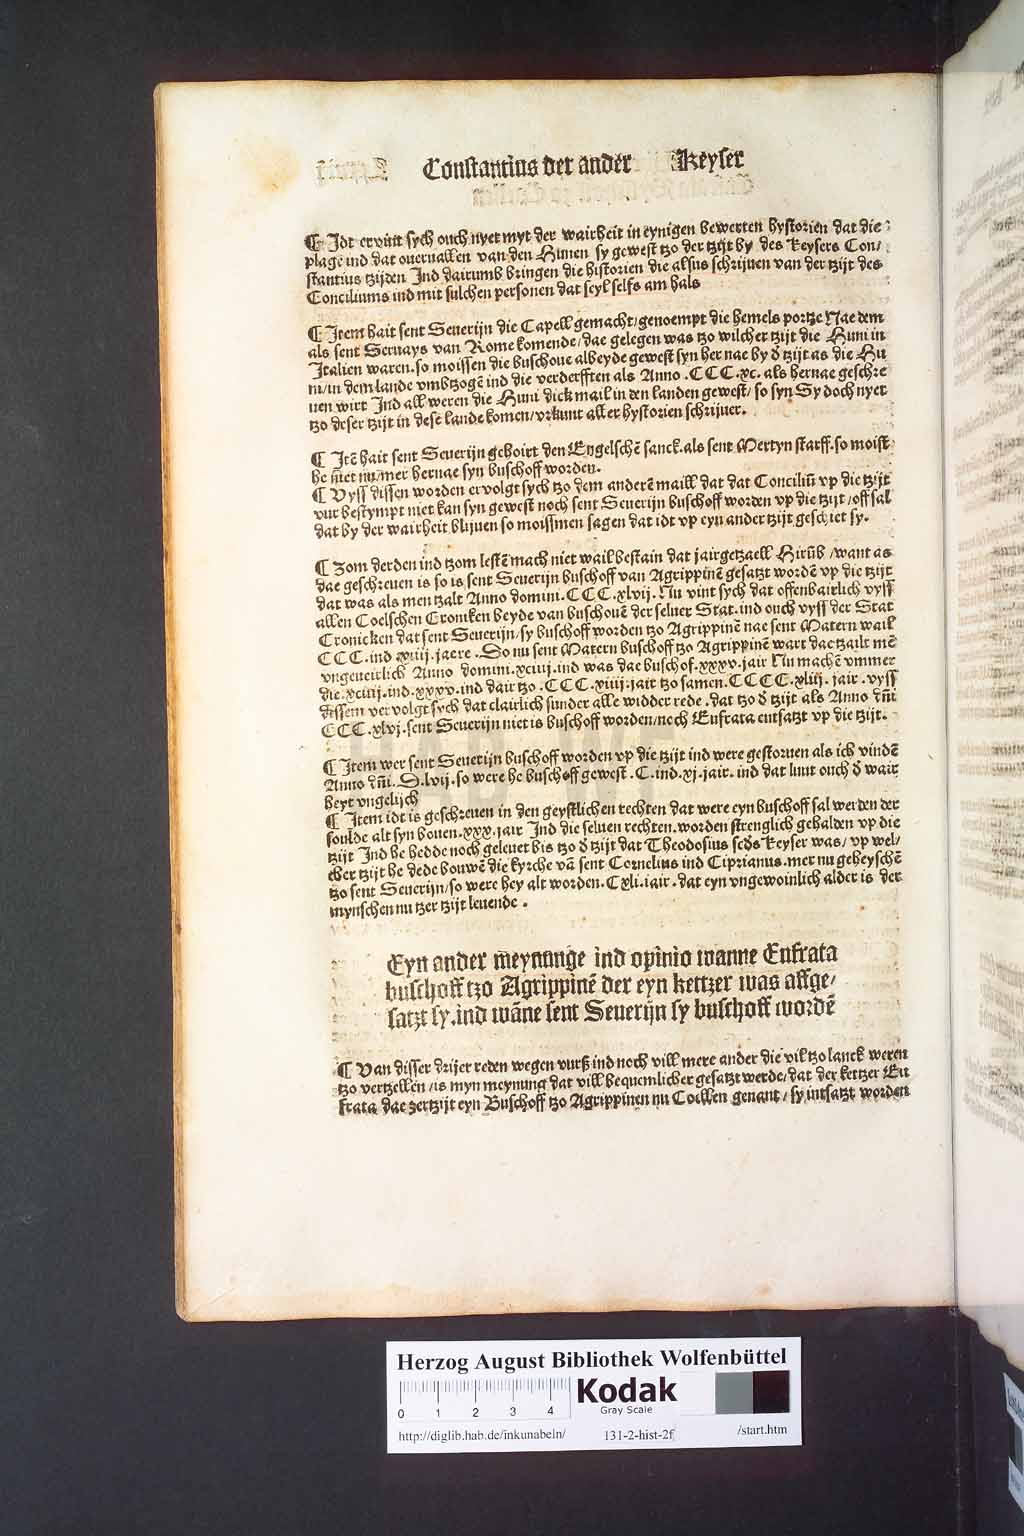 Constantius der ander Keyser
¶ Idt ervint sych ouch nyet myt der wairheit in eynigen bewerten hystorien dat die
plage ind dat overvallen van den Hunen sy gewest tzo der tzijt by des Keysers Con/
stantius tzijden Ind dairumb bringen die historien die alsus schrijuen van der tzijt des
Conciliums ind mit sulchen personen dat seyl selfs am hals
¶ Item hait sent Seuerijn die Capell gemacht/genoempt die hemels portze Nae dem
als sent Seruays van Rome komende/dae gelegen was tzo wilcher tzijt die Huni in
Italien waren.so moissen die buschoue albeyde gewest syn her nae by d̕ tzijt as die Hu
ni/in dem lande vmbtzogē ind die verderfften als Anno .CCC.xc. als hernae geschre
uen wirt Ind all weren die Huni dick mail in den landen gewest/so syn Sy doch nyet
tzo deser tzijt in dese lande komen/vrkunt aller hystorien schrijuer.
¶ Itē hait sent Seuerijn gehoirt den Engelschē sanck.als sent Mertyn starff.so moist
he m̄et nu/mer hernae syn buschoff worden.
¶ Vyss dissen worden ervolgt sych tzo dem anderē maill dat dat Conciliū vp die tzijt
vur bestympt niet kan syn gewest noch sent Seuerijn buschoff worden vp die tzijt/off sal
dat by der wairheit blijuen so moissmen sagen dat idt vp eyn ander tzijt geschiet sy.
¶ Zom derden ind tzom lestē mach niet wail bestain dat jairgetzaell Hirūb/want as
dae geschreuen is so is sent Seuerijn buschoff van Agrippinē gesatzt wordē vp die tzijt
dat was als men tzalt Anno domini.CCC.xlvij.Nu vint sych dat offenbairlich vyss
allen Coelschen Croniken beyde van buschouē der seluer Stat.ind ouch vyss der Stat
Cronicken dat sent Seuerijn/sy buschoff worden tzo Agrippinē nae sent Matern wail
CCC.ind xiiij.jaere.So nu sent Matern buschoff tzo Agrippinē wart dae tzailt mē
vngeueirlich Anno domini.xciiij.ind was dae buschof.xxxv.jair Nu machē vmmer
die.xciiij.ind.xxxv.ind dair tzo.CCC.xiiij.jair tzo samen.CCCC.xliij.jair.vyss
dissem vervolgt sych dat clairlich sunder alle widder rede.dat tzo d̕ tzijt als Anno dn̄i
CCC.xlvj.sent Seuerijn niet is buschoff worden/noch Eufrata entsatzt vp die tzijt.
¶ Item wer sent Seuerijn buschoff worden vp die tzijt ind were gestoruen als ich vindē
Anno dn̄i.D.lvij.so were he buschoff gewest.C.ind.xj.jair.ind dat luut ouch d̕ wair
heyt vngelijch
¶ Item idt is geschreuen in den geystlichen rechten dat were eyn buschoff sal werden der
soulde alt syn bouen.xxx.jair Ind die seluen rechten.worden strenglich gehalden vp die
tzijt Ind he hedde noch geleuet bis tzo d̕ tzijt dat Theodosius sed̕s Keyser was/vp wel/
cher tzijt he dede bouwē die kyrche vā sent Cornelius ind Ciprianus.mer nu geheyschē
tzo sent Seuerijn/so were hey alt worden.Cxli.iair.dat eyn vngewoinlich alder is der
mynschen nu tzer tzijt leuende.
Eyn ander meynunge ind opinio wanne Eufrata
buschoff tzo Agrippinē der eyn kettzer was affge/
satzt sy.ind wāne sent Seuerijn sy buschoff wordē
¶ Van disser drijer reden wegen vurß ind noch vill mere ander die vil tzo lanck weren
tzo vertzellen/is myn meynung dat vill bequemlicher gesatzt werde/dat der kettzer Eu
frata dae zertzijt eyn Buschoff tzo Agrippinen nu Coellen genant/sy intsatzt worden
HAB WF
Herzog August Bibliothek Wolfenbüttel
0 1 2 3 4
Kodak
Gray Scale
http://diglib.hab.de/inkunabeln/ 131-2-hist-2f /start.htm